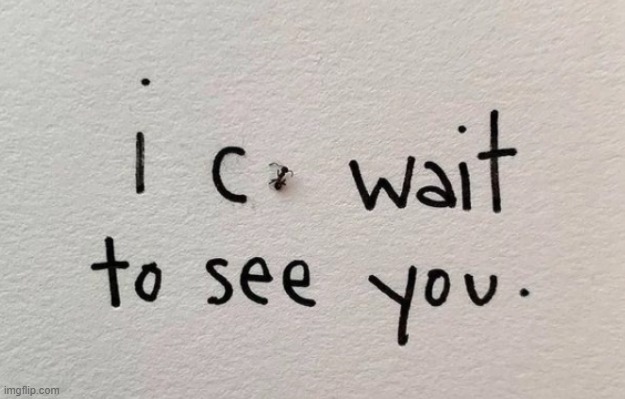 i c wait
to see you.
imgflip.com